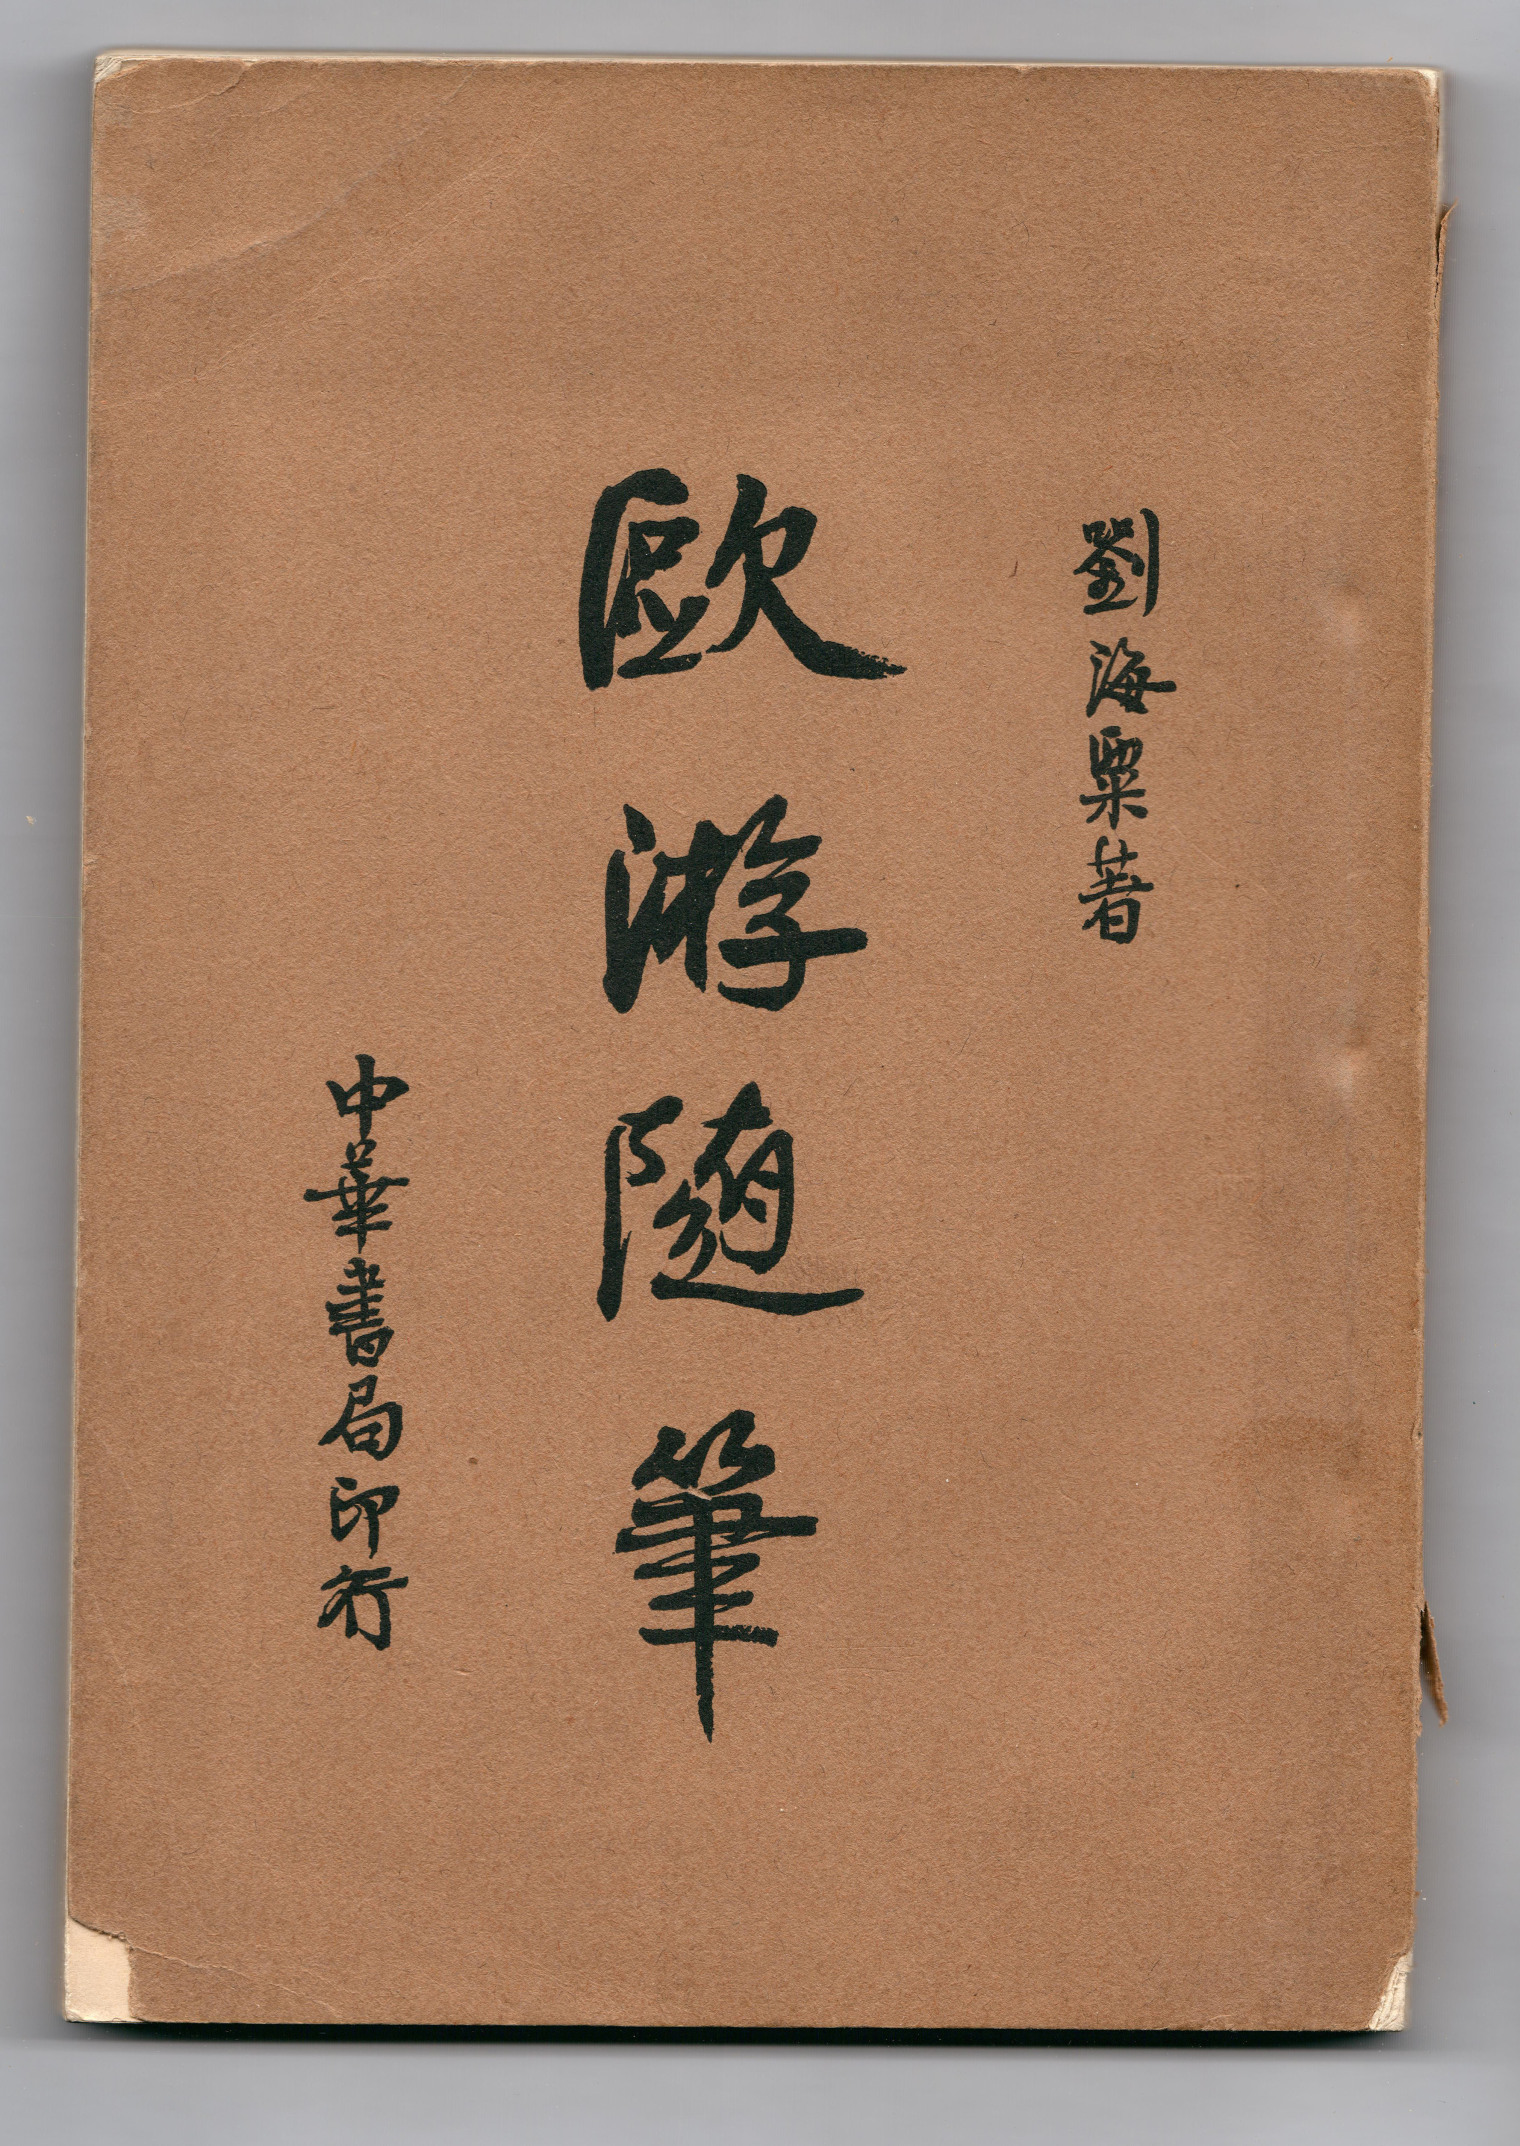 劉海粟著
歐游隨筆
中華書局印行